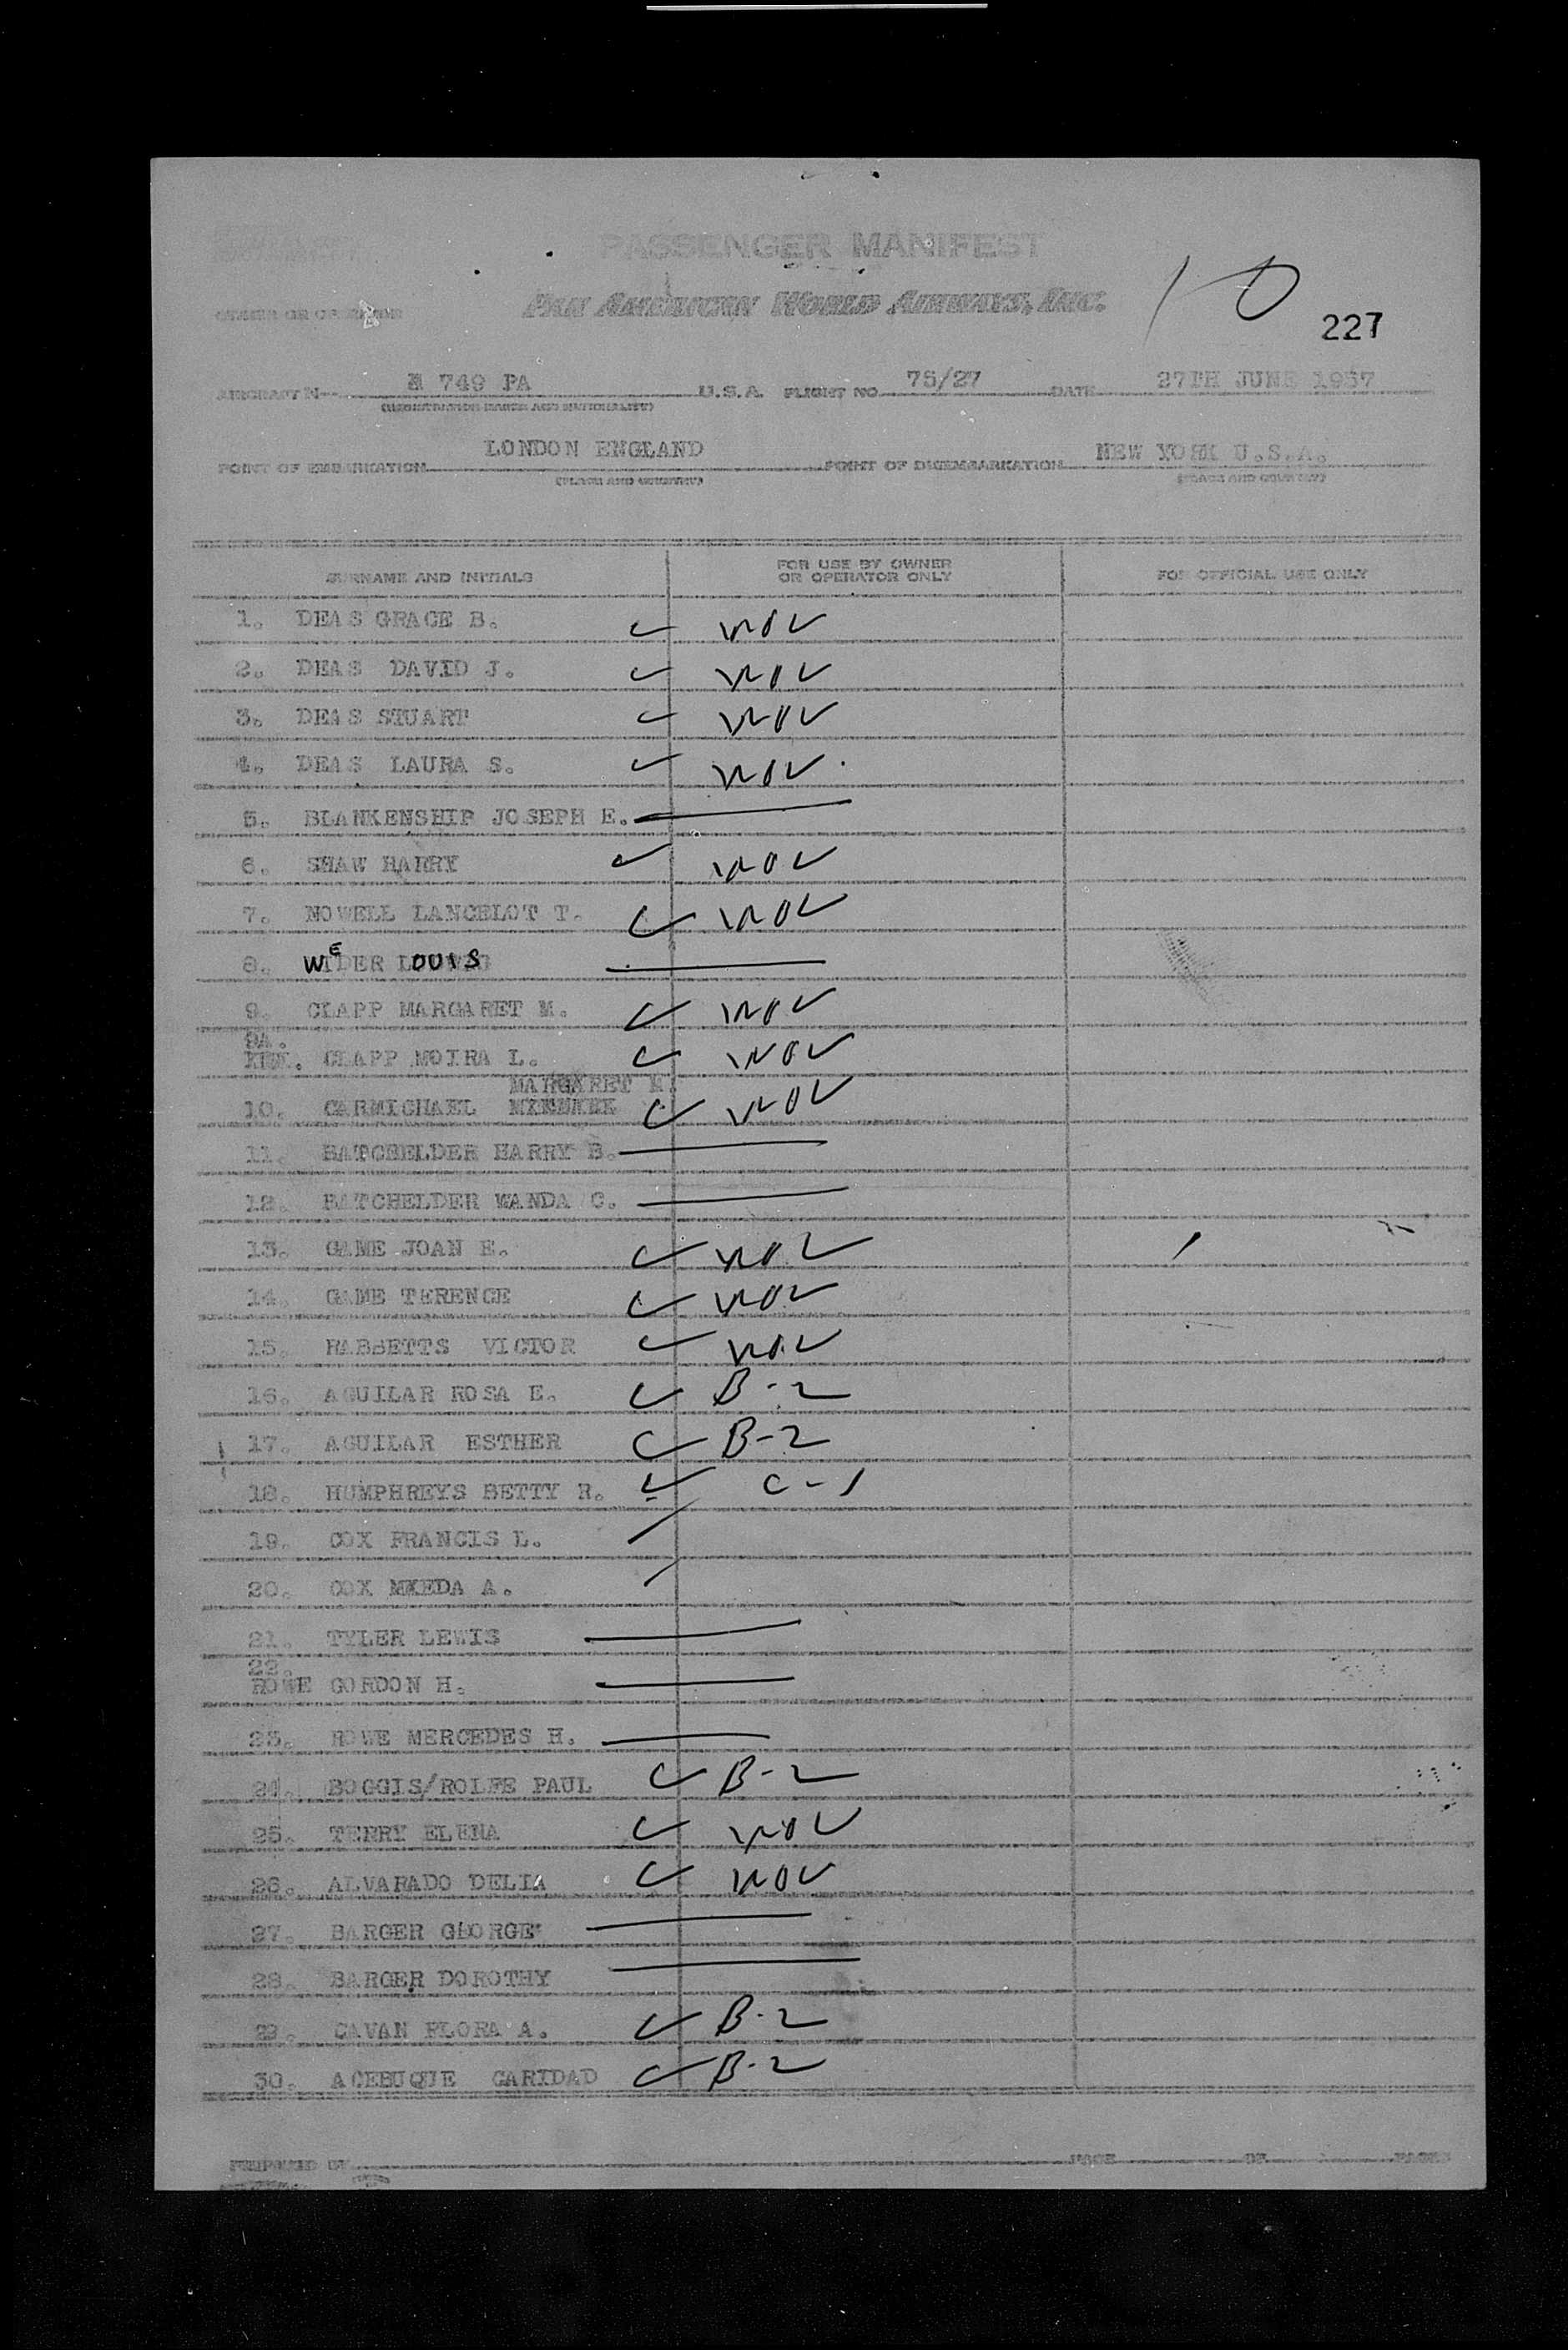 PASSENGER MANIFEST
PAN AMERICAN WORLD AIRWAYS, INC.
10
OWNER OR OPERATOR
227
AIRCRAFT N 749 PA U.S.A. FLIGHT NO. 75/27 DATE 27TH JUNE 1957
(REGISTRATION MARKS AND NATIONALITY)
POINT OF EMBARKATION LONDON ENGLAND POINT OF DISEMBARKATION NEW YORK U.S.A.
(PLACE AND COUNTRY) (PLACE AND COUNTRY)
SURNAME AND INITIALS FOR USE BY OWNER OR OPERATOR ONLY FOR OFFICIAL USE ONLY
1. DEAS GRACE B.
2. DEAS DAVID J.
3. DEAS STUART
4. DEAS LAURA S.
5. BLANKENSHIP JOSEPH E.
6. SHAW HARRY
7. NOWELL LANCELOT T.
8. WEDER LOUIS
9. CLAPP MARGARET M.
9A. CLAPP MOIRA L.
MARGARET M.
10. CARMICHAEL
11. BATCHELDER HARRY B.
12. BATCHELDER WANDA C.
13. GAME JOAN E.
14. GAME TERENCE
15. HABBETTS VICTOR
16. AGUILAR ROSA E. B-2
17. AGUILAR ESTHER B-2
18. HUMPHREYS BETTY R. C-1
19. COX FRANCIS L.
20. COX MKEDA A.
21. TYLER LEWIS
22.
ROWE GORDON H.
23. ROWE MERCEDES H.
24. BOGGIS/ROLFE PAUL B-2
25. TERRY ELENA
26. ALVARADO DELIA
27. BARGER GEORGE
28. BARGER DOROTHY
29. CAVAN FLORA A. B-2
30. ACEBUQUE CARIDAD B-2
PREPARED BY PAGE OF PAGES